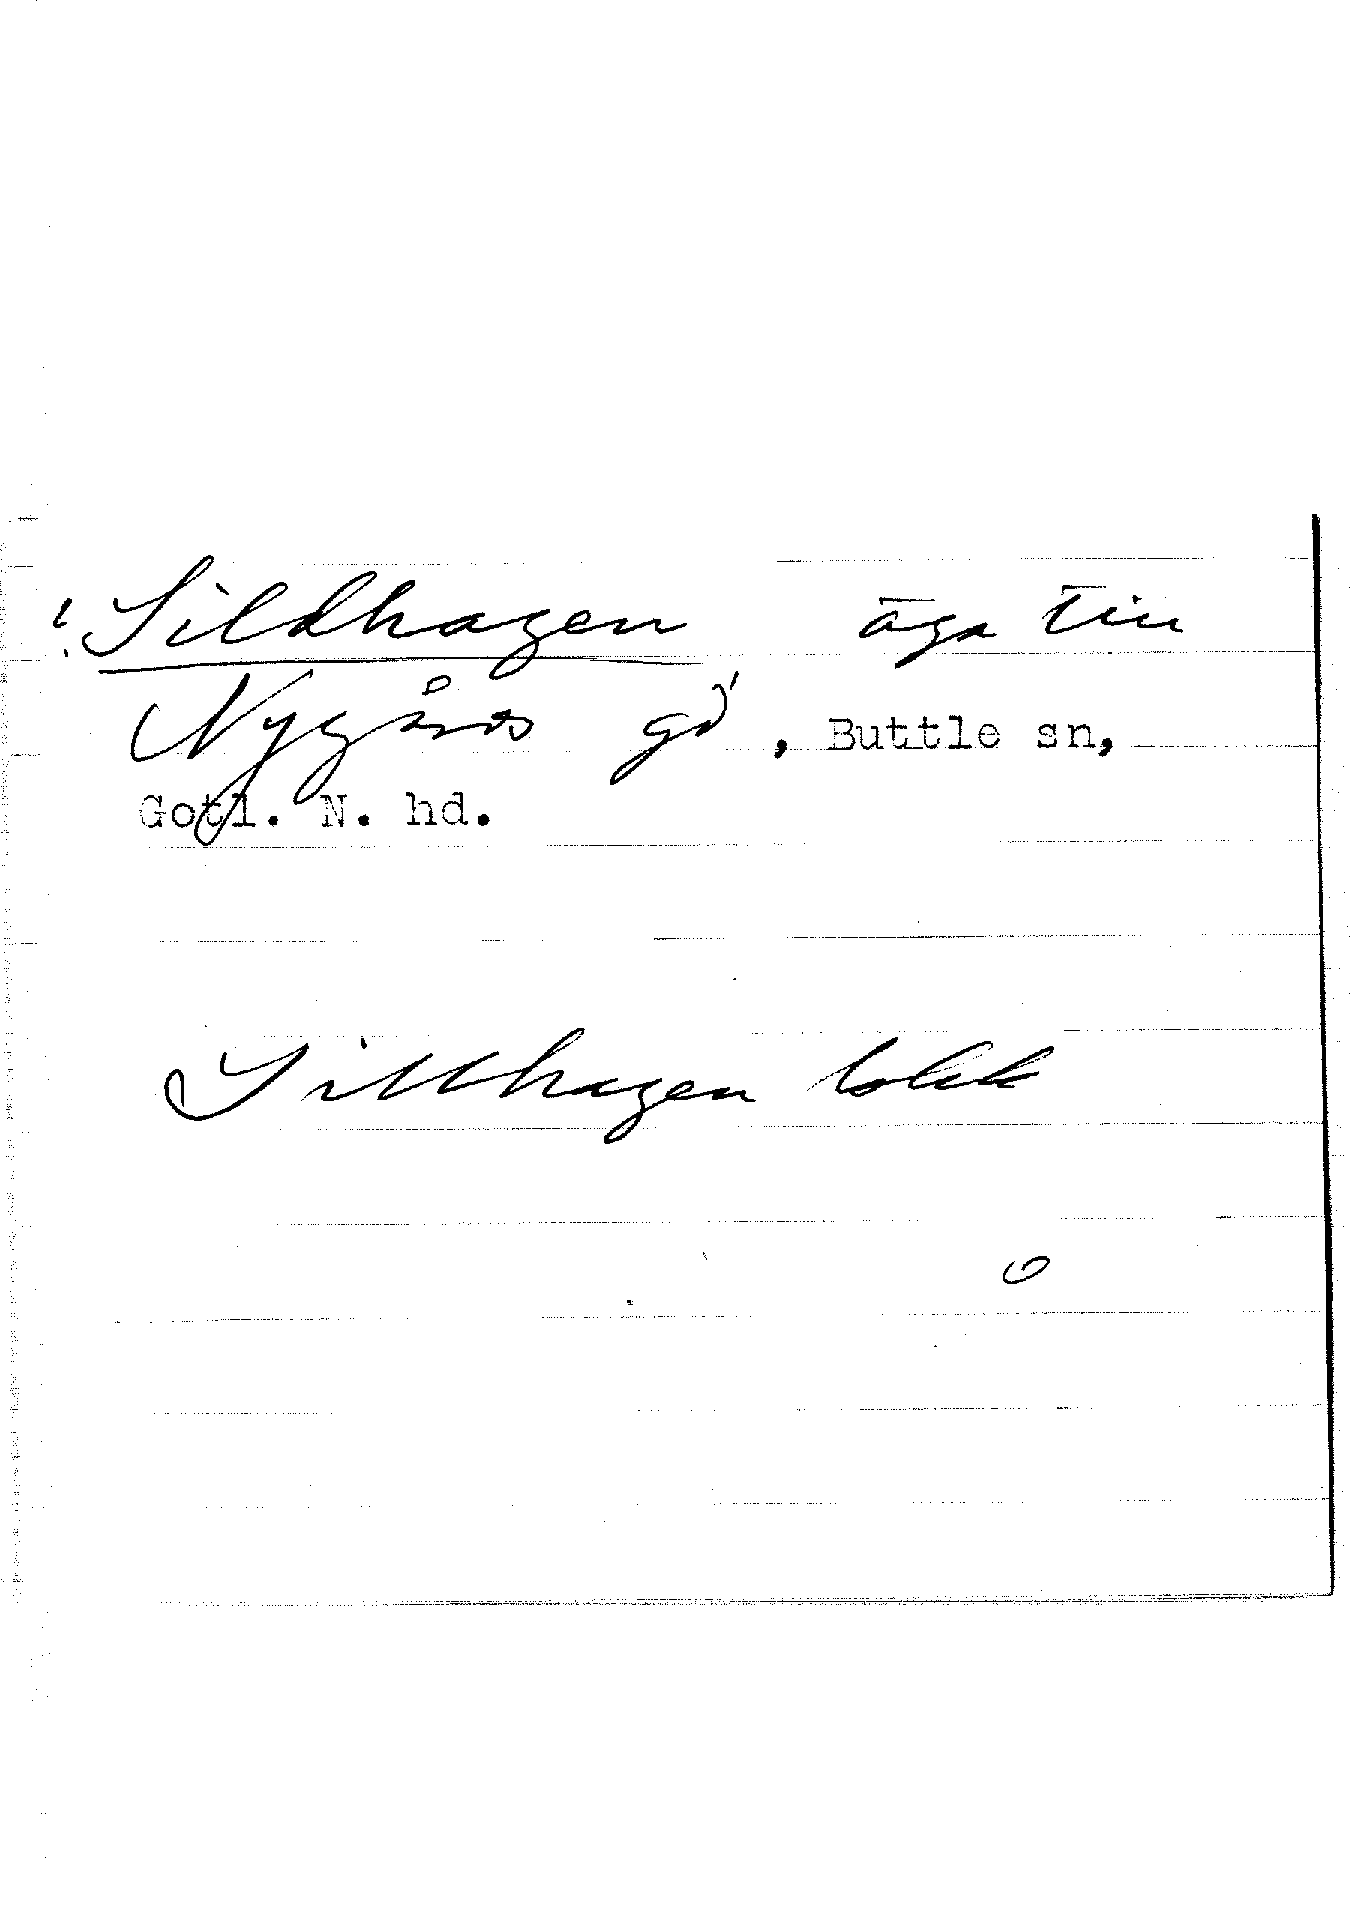 ! Sildhagen äga till
Nygårds gd, Buttle sn,
Gotl. N. hd.
Sillhagen